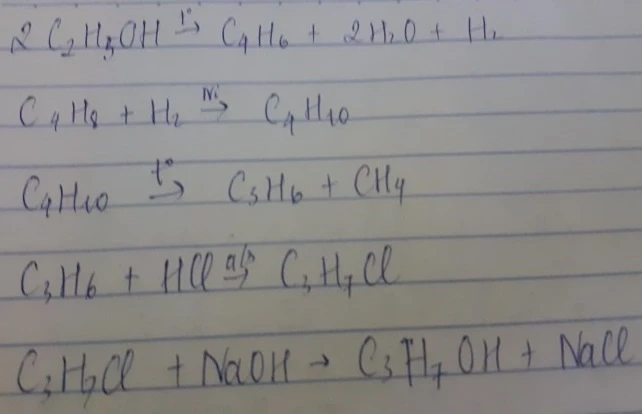 2 C₂H₅OH →(t°) C₄H₆ + 2H₂O + H₂
C₄H₈ + H₂ →(Ni) C₄H₁₀
C₄H₁₀ →(t°) C₃H₆ + CH₄
C₃H₆ + HCl →(as) C₃H₇Cl
C₃H₇Cl + NaOH → C₃H₇OH + NaCl